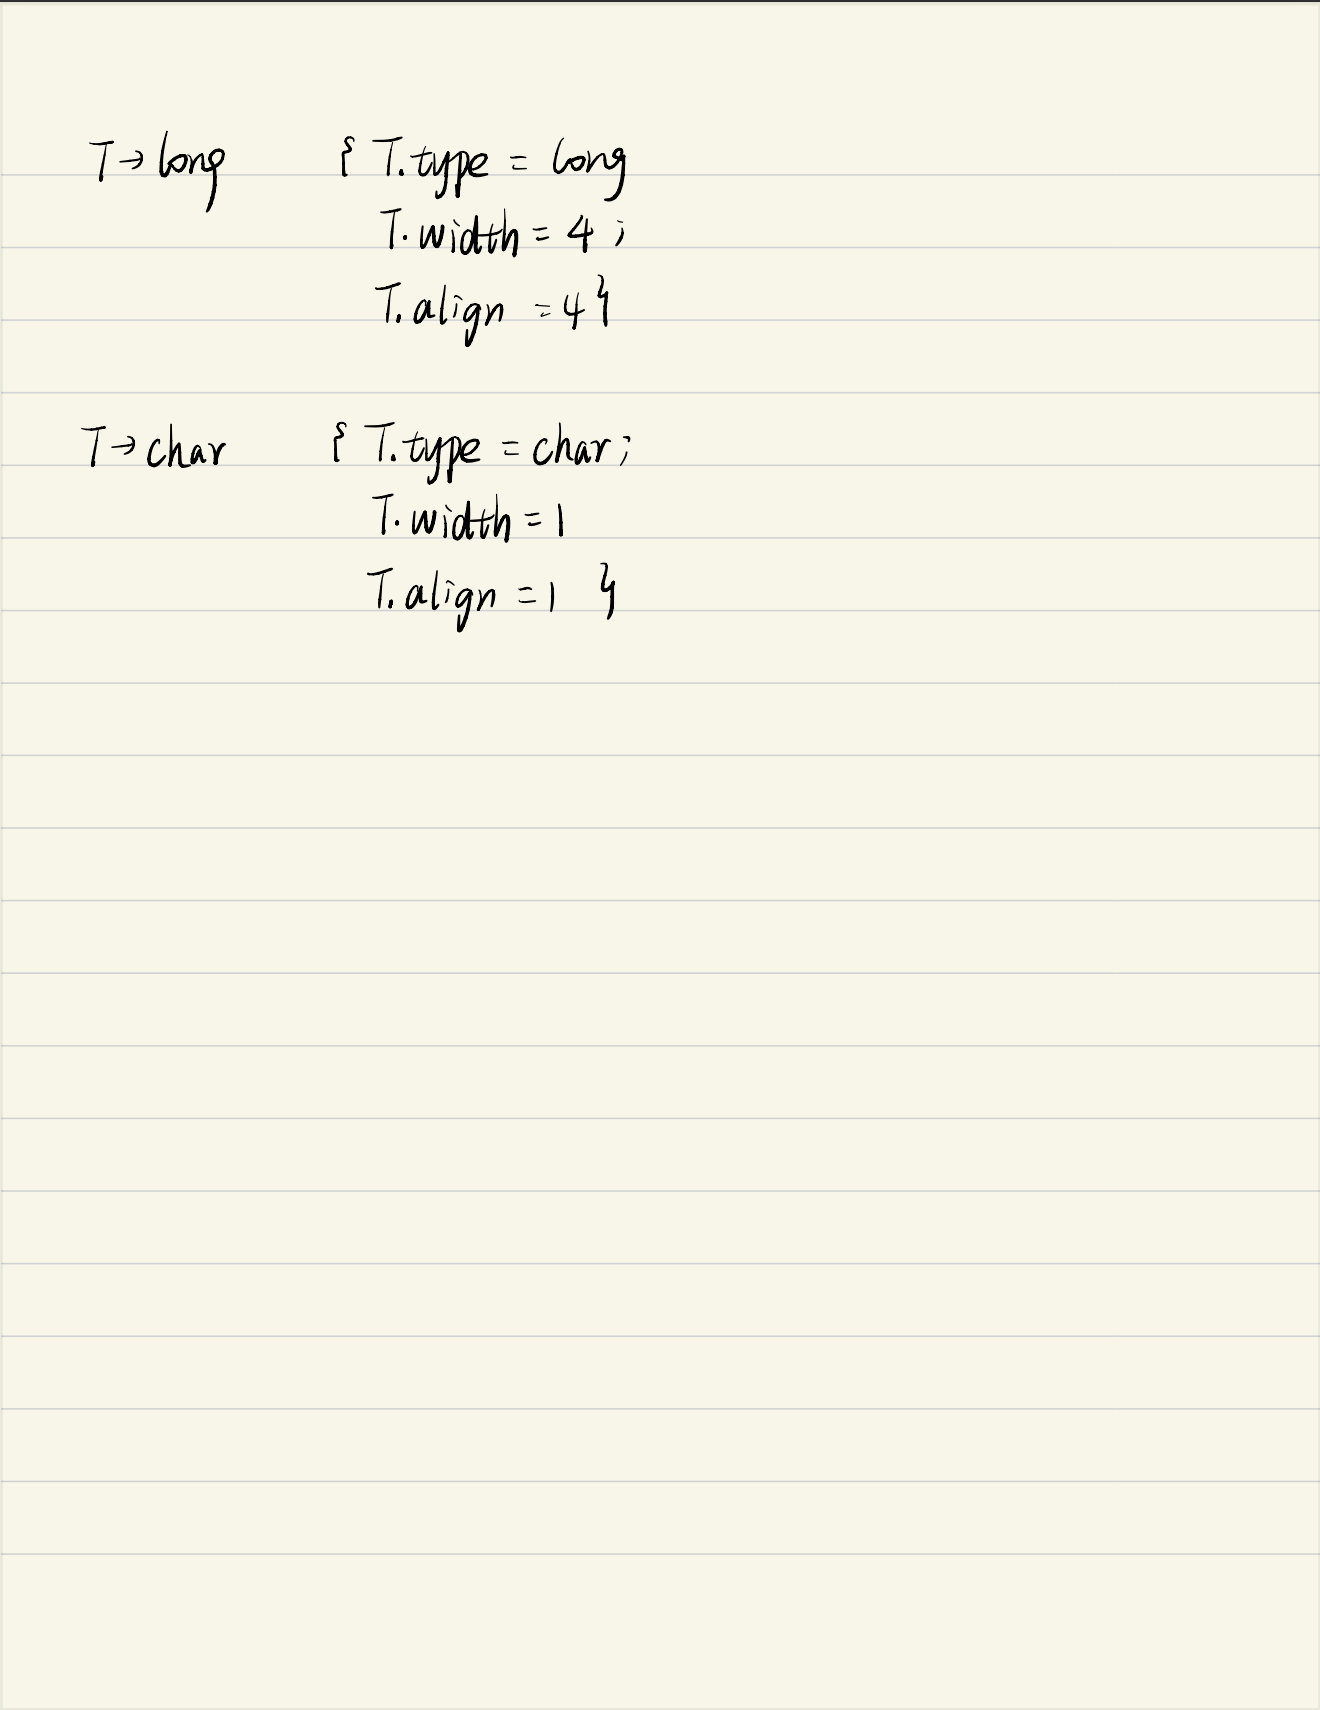 T→long { T.type = long
T.width = 4 ;
T.align = 4 }
T→char { T.type = char ;
T.width = 1
T.align = 1 }